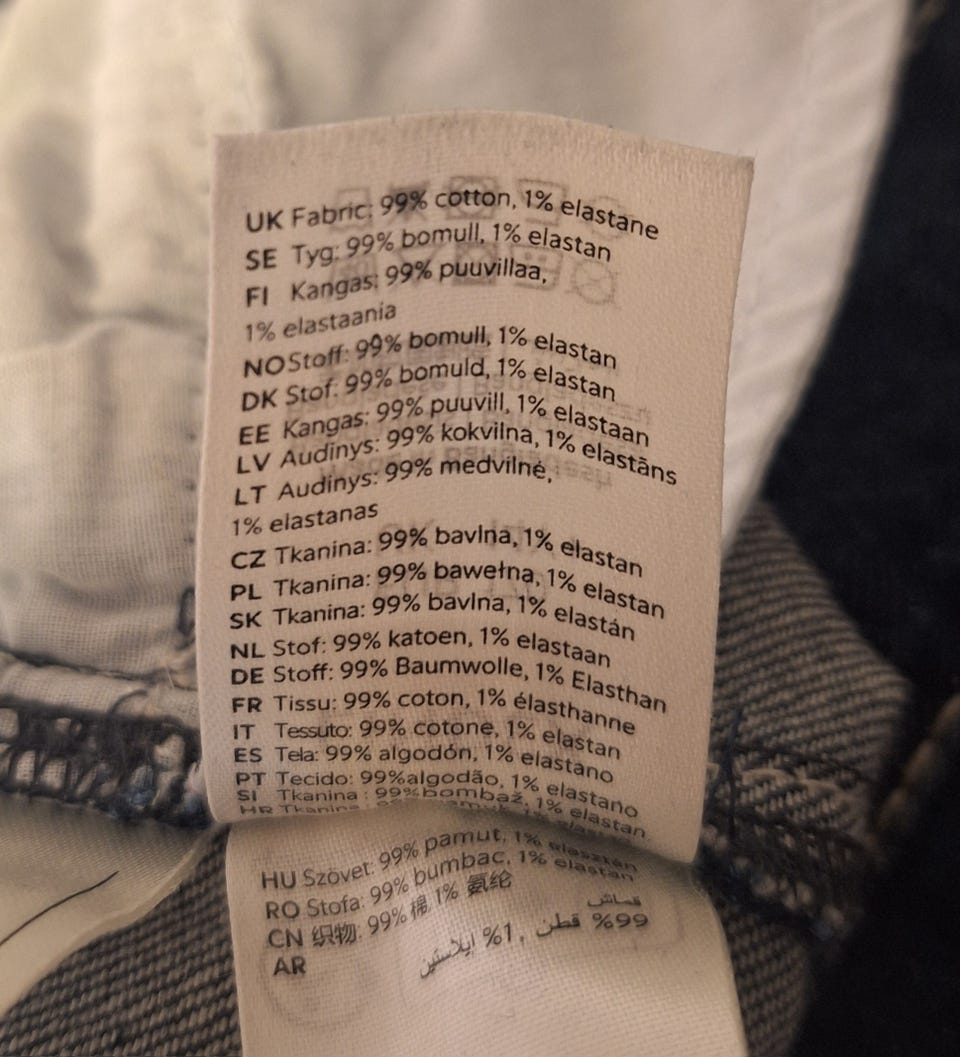 UK Fabric: 99% cotton, 1% elastane
SE Tyg: 99% bomull, 1% elastan
FI Kangas: 99% puuvillaa,
1% elastaania
NO Stoff: 99% bomull, 1% elastan
DK Stof: 99% bomuld, 1% elastan
EE Kangas: 99% puuvill, 1% elastaan
LV Audinys: 99% kokvilna, 1% elastāns
LT Audinys: 99% medvilnė,
1% elastanas
CZ Tkanina: 99% bavlna, 1% elastan
PL Tkanina: 99% bawełna, 1% elastan
SK Tkanina: 99% bavlna, 1% elastán
NL Stof: 99% katoen, 1% elastaan
DE Stoff: 99% Baumwolle, 1% Elasthan
FR Tissu: 99% coton, 1% élasthanne
IT Tessuto: 99% cotone, 1% elastan
ES Tela: 99% algodón, 1% elastano
PT Tecido: 99%algodão, 1% elastano
SI Tkanina : 99%bombaž, 1% elastan
HR Tkanina
HU Szövet: 99% pamut, 1% elasztán
RO Stofa: 99% bumbac, 1% elastan
CN 织物: 99% 棉 1% 氨纶
AR قماش
99% قطن , 1% ايلاستين